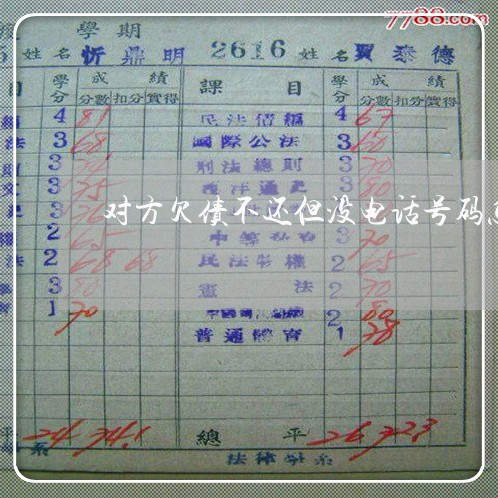 7788.com
學期
5 姓名 忻鼎明 2616 姓名 賈泰德
目 學分 成績 課目 學分 成績
分數 扣分 實得 分數 扣分 實得
4 81 民法債編 4 67
法 3 68 國際公法 3 60
3 刑法總則 3 70
3 75 西洋通史 3 80
对方欠债不还但没电话号码
2 65 3 70
法 2 68 68 民法物權 2 65
3 80 憲法 2 70
1 70 2 80
普通體育 1 78
平 24 74.1 總平 26 72.3
系 法律學系